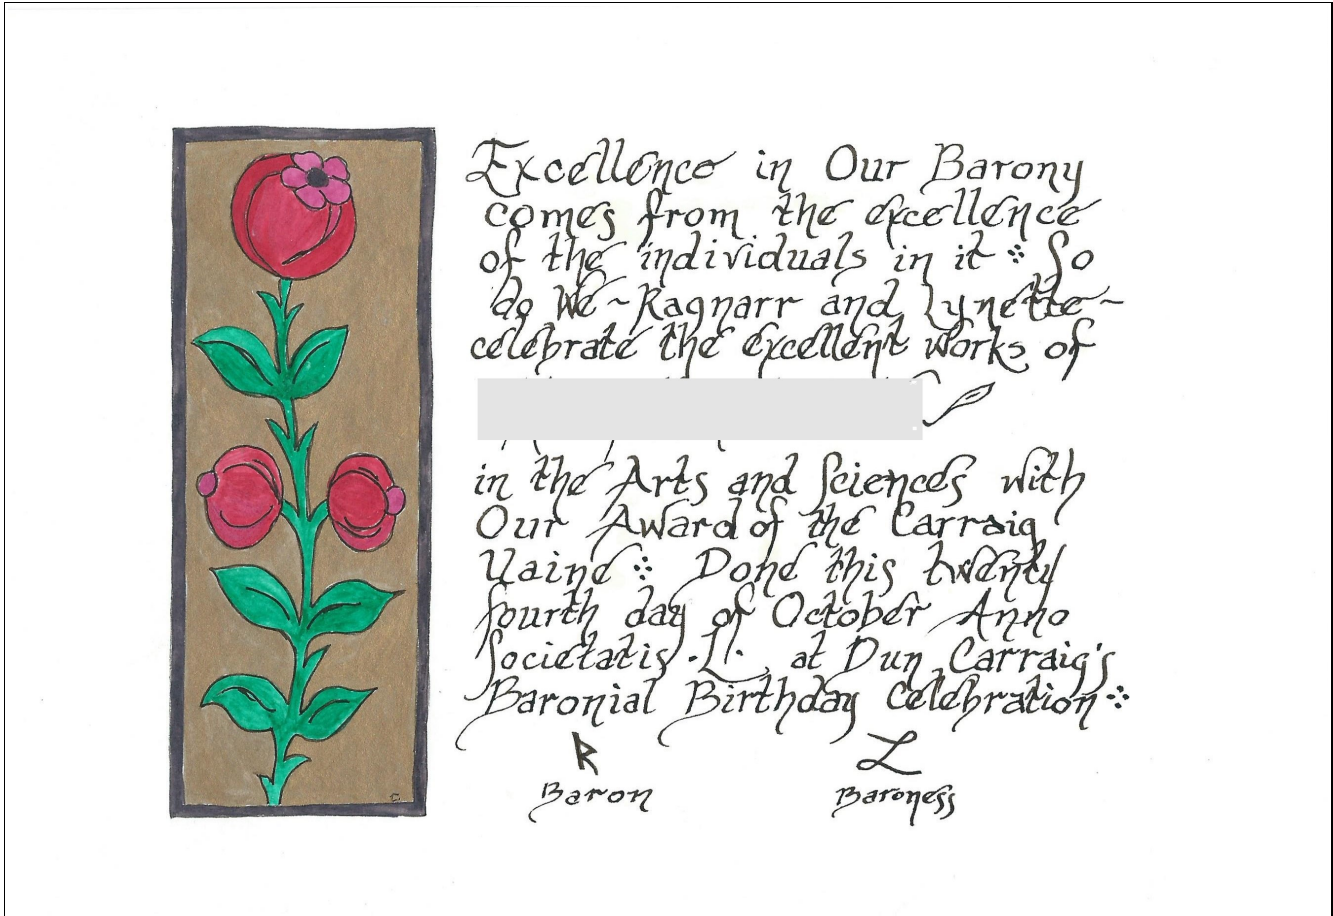 Excellence in Our Barony
comes from the excellence
of the individuals in it ⁘ So
do We ~ Ragnarr and Lynette ~
celebrate the excellent works of
in the Arts and Sciences with
Our Award of the Carraig
Uaine ⁘ Done this twenty
fourth day of October Anno
Societatis ·L· at Dun Carraig's
Baronial Birthday Celebration ⁘
R L
Baron Baroness